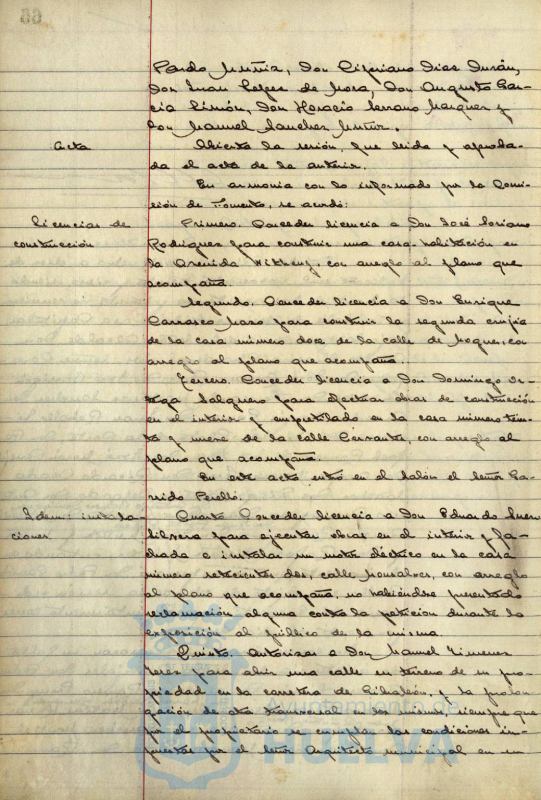 66
Pardo Muñiz, Don Cipriano Dias Durán,
Don Juan Lopez de Mora, Don Augusto Gar-
cia Simón, Don Horacio Serrano Marquez y
Don Manuel Sanchez Muñiz.
Acta
Abierta la sesión, fue leida y aproba-
da el acta de la anterior.
En armonia con lo informado por la Comi-
sión de Fomento, se acordó:
Licencias de
construcción
Primero. Conceder licencia a Don José Soriano
Rodriguez para construir una casa-habitación en
la Avenida, con arreglo al plano que
acompaña.
Segundo. Conceder licencia a Don Enrique
Carrasco para construir la segunda crujia
de la casa número doce de la calle de Moguer, con
arreglo al plano que acompaña.
Tercero. Conceder licencia a Don Domingo Or-
tega Salguero para efectuar obras de construcción
en el interior y empretilado en la casa número trein-
ta y nueve de la calle Cervantes, con arreglo al
plano que acompaña.
En este acto entró en el Salón el Señor Ga-
rrido Perelló.
Idem: instala-
ciones
Cuarto. Conceder licencia a Don Eduardo
para ejecutar obras en el interior y fa-
chada e instalar un motor eléctrico en la casa
número setecientos dos, calle, con arreglo
al plano que acompaña, no habiéndose presentado
reclamación alguna contra la petición durante la
exposición al público de la misma.
Quinto. Autorizar a Don Manuel Ximenez
Jerez para abrir una calle en terreno de su pro-
piedad en la carretera de Gibraleón, y la prolon-
gación de otra transversal a los mismos, siempre que
por el propietario se cumplan las condiciones im-
puestas por el Señor Arquitecto municipal en su
Ayuntamiento de
HUELVA